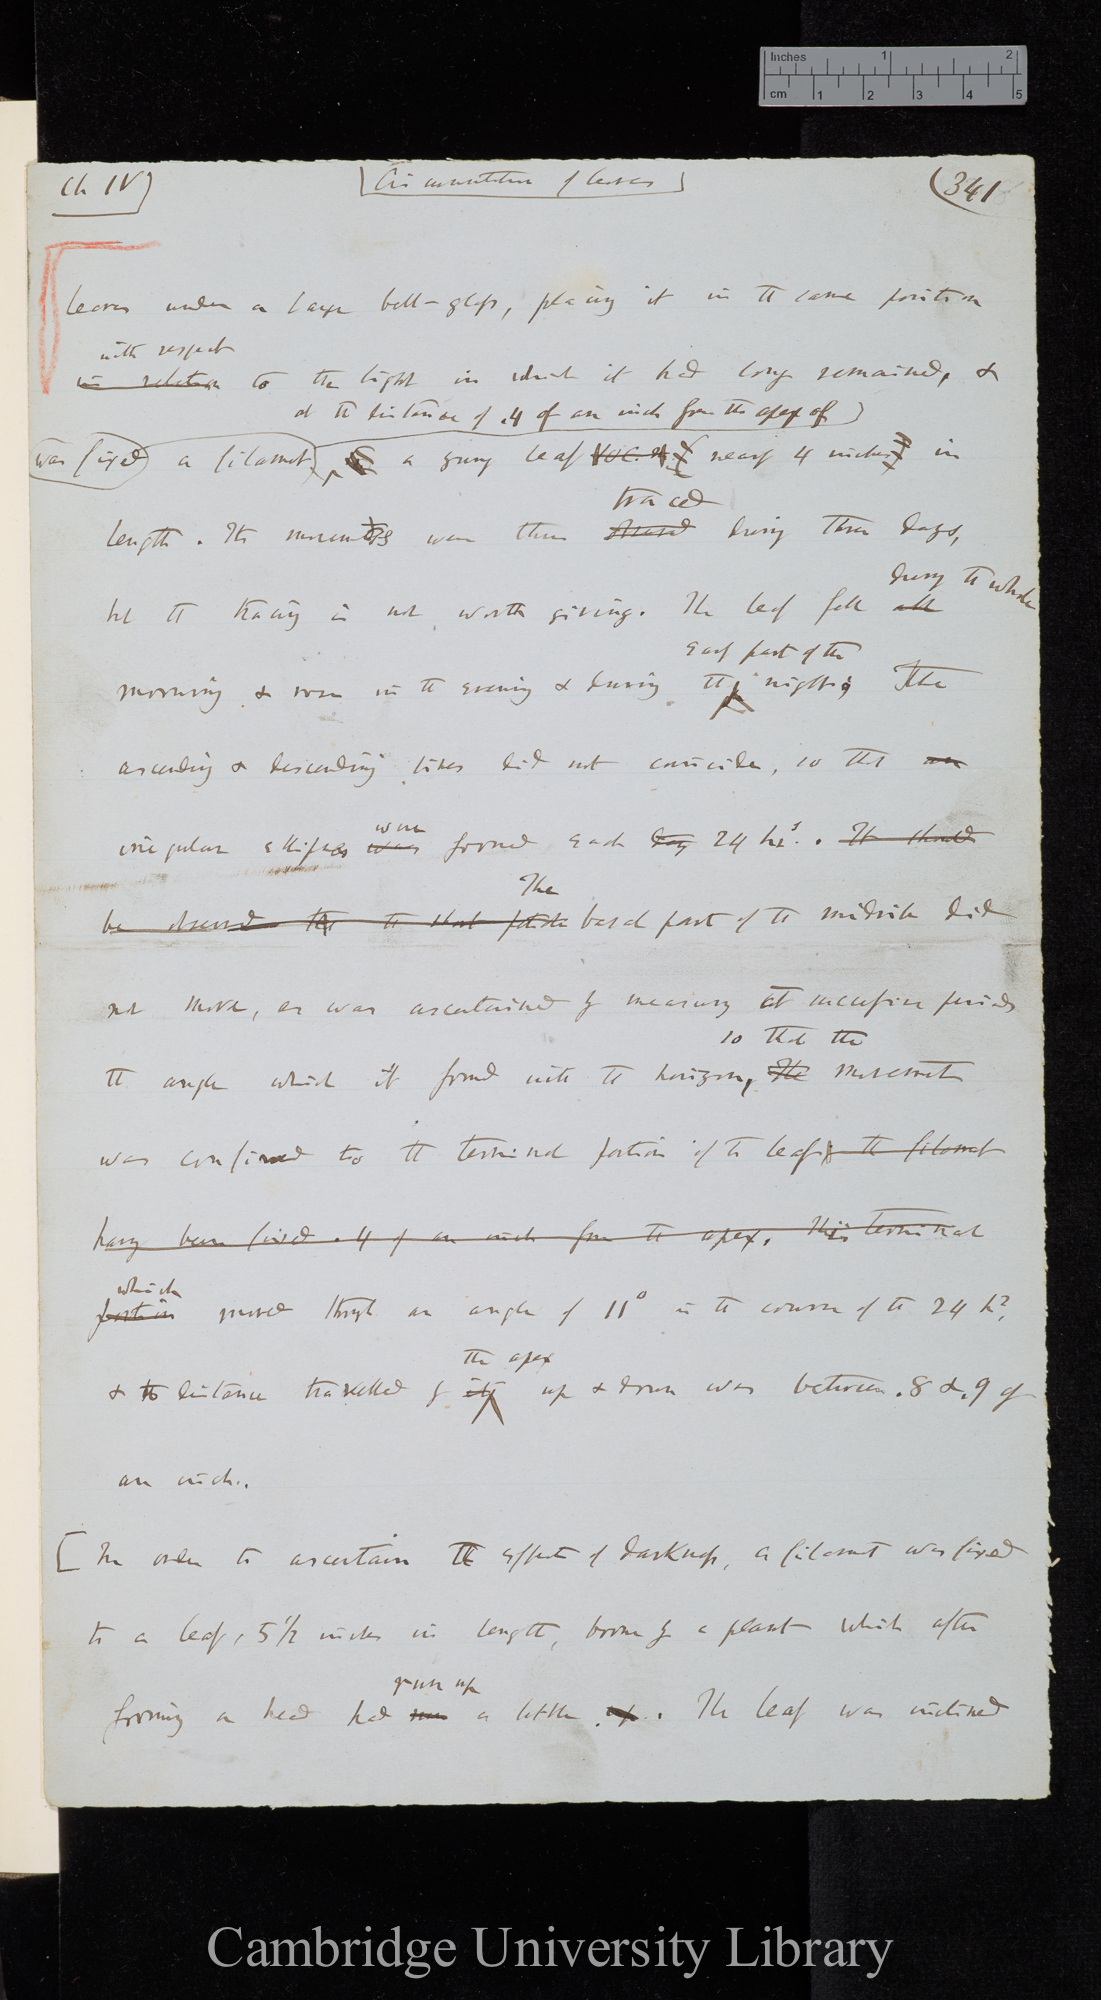 Inches 1 2
cm 1 2 3 4 5
Ch IV
Circumnutation of leaves
341
leaves under a large bell-glass, placing it in the same position
with respect
in relation to the light in which it had long remained, &
at the distance of .4 of an inch from the apex of
was fixed a filament, a young leaf nearly 4 inches in
traced
length. Its movements were then during three days,
during the whole
but the tracing is not worth giving. The leaf fell all
early part of the
morning & rose in the evening & during the night; The
ascending & descending lines did not coincide, so that an
were
irregular ellipses was formed each day 24 hrs. It should
The
be observed that the that basal part of the midrib did
not move, as was ascertained by measuring at successive periods
so that the
the angle which it formed with the horizon, The movement
was confined to the terminal portion of the leaf, the filament
having been fixed .4 of an inch from the apex, This terminal
which
portion moved through an angle of 11° in the course of the 24 hr,
the apex
& the distance travelled by its up & down was between .8 & .9 of
an inch.
In order to ascertain the effects of darkness, a filament was fixed
to a leaf, 5 1/2 inches in length, borne by a plant which after
grown up
forming a head had a little up. The leaf was inclined
Cambridge University Library